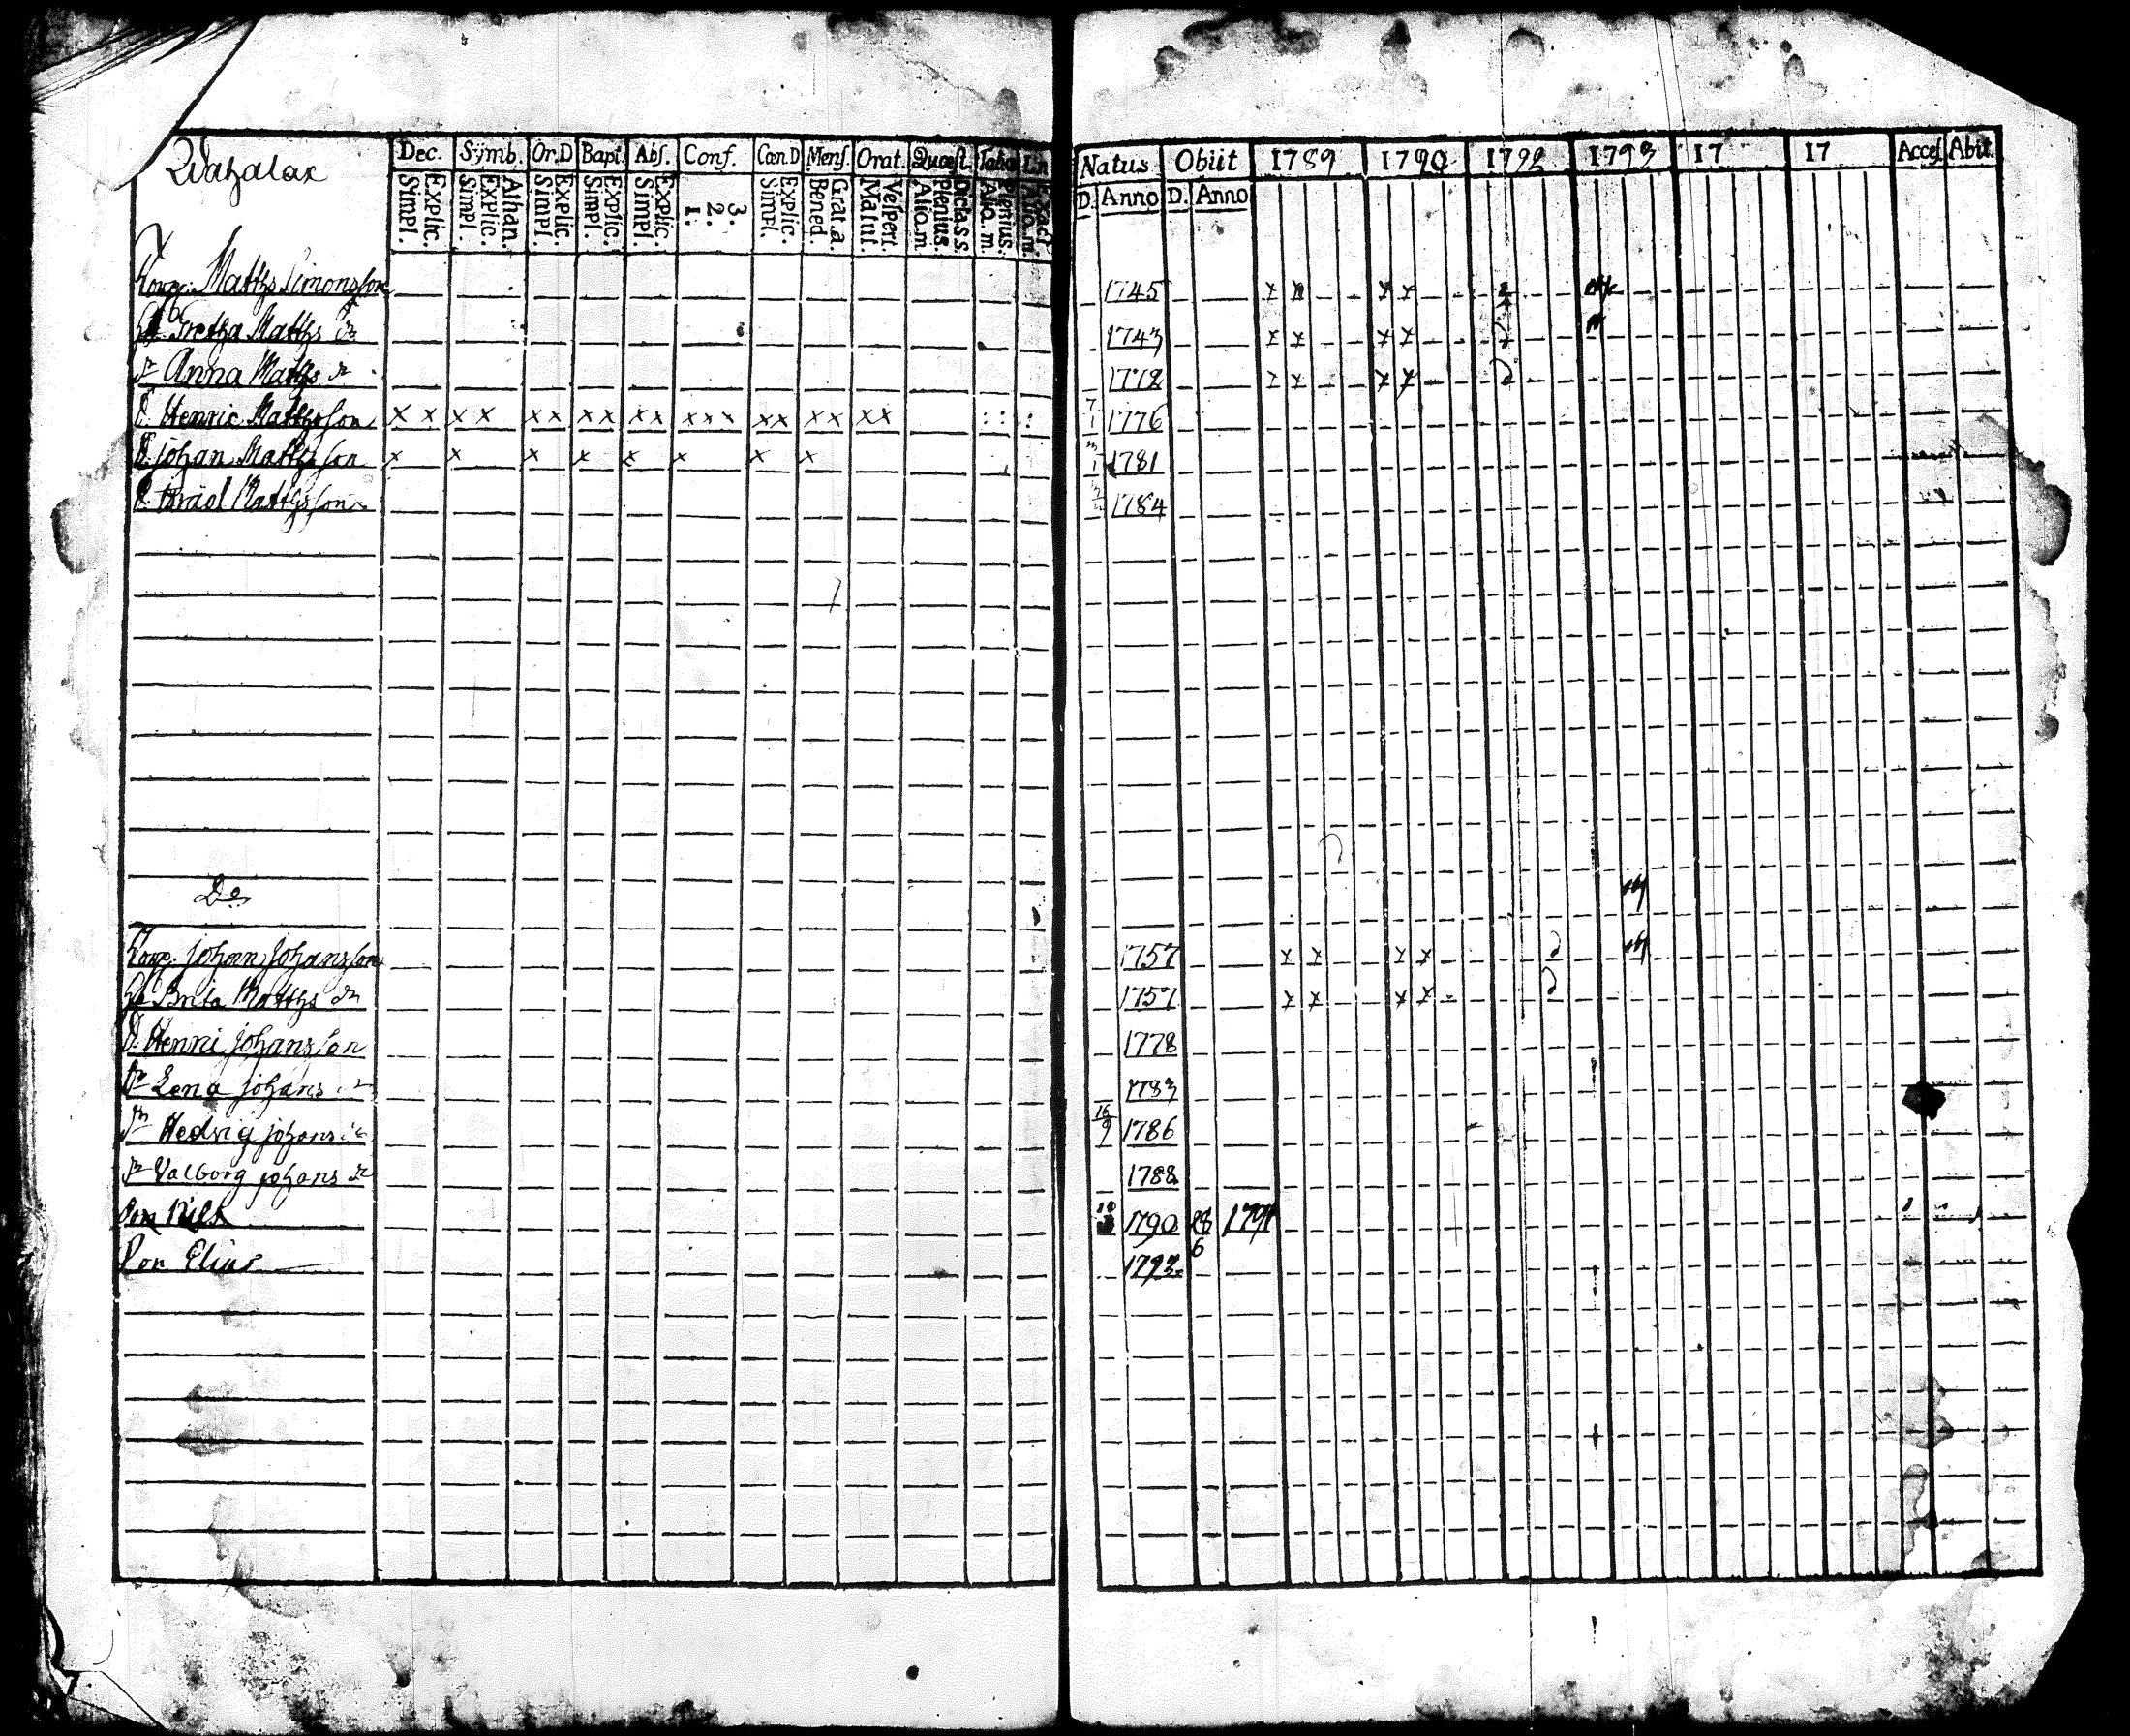 Dec. Symb. Or.D Bapt. Abs. Conf. Cœn.D Mens. Orat. Quæst.
Simpl. Explic. Simpl. Explic. Athan. Simpl. Explic. Simpl. Explic. Simpl. Explic. 1. 2. 3. Simpl. Explic. Bened. Grat.a. Matut. Vespert. Alio.m. Plenius. Dicta s.s. Alio.m. Plenius. Alio.m. Exact.
Natus Obiit 1789 1790 1792 1793 17 17 Acces. Abit.
D. Anno D. Anno
Matths Simonsson 1745 x x x x
Gretha Matths dr 1743 x x x x
dr Anna Matths dr 1772 x x x x
S. Henric Mathsson x x x x x x x x x x x x x x x x x x x 7/1 1776
S. johan Mathsson x x x x x x x x 1781
Matthsson 1784
Do
johan johansson 1757 x x x x
Brita Matths dr 1757 x x x x
S. Henric johansson 1778
dr Lena johans dr 1783
dr Hedvig johans dr 16/9 1786
dr Valborg johans dr 1788
Son Nils 1790 28/6 1791
Son Elias 1792